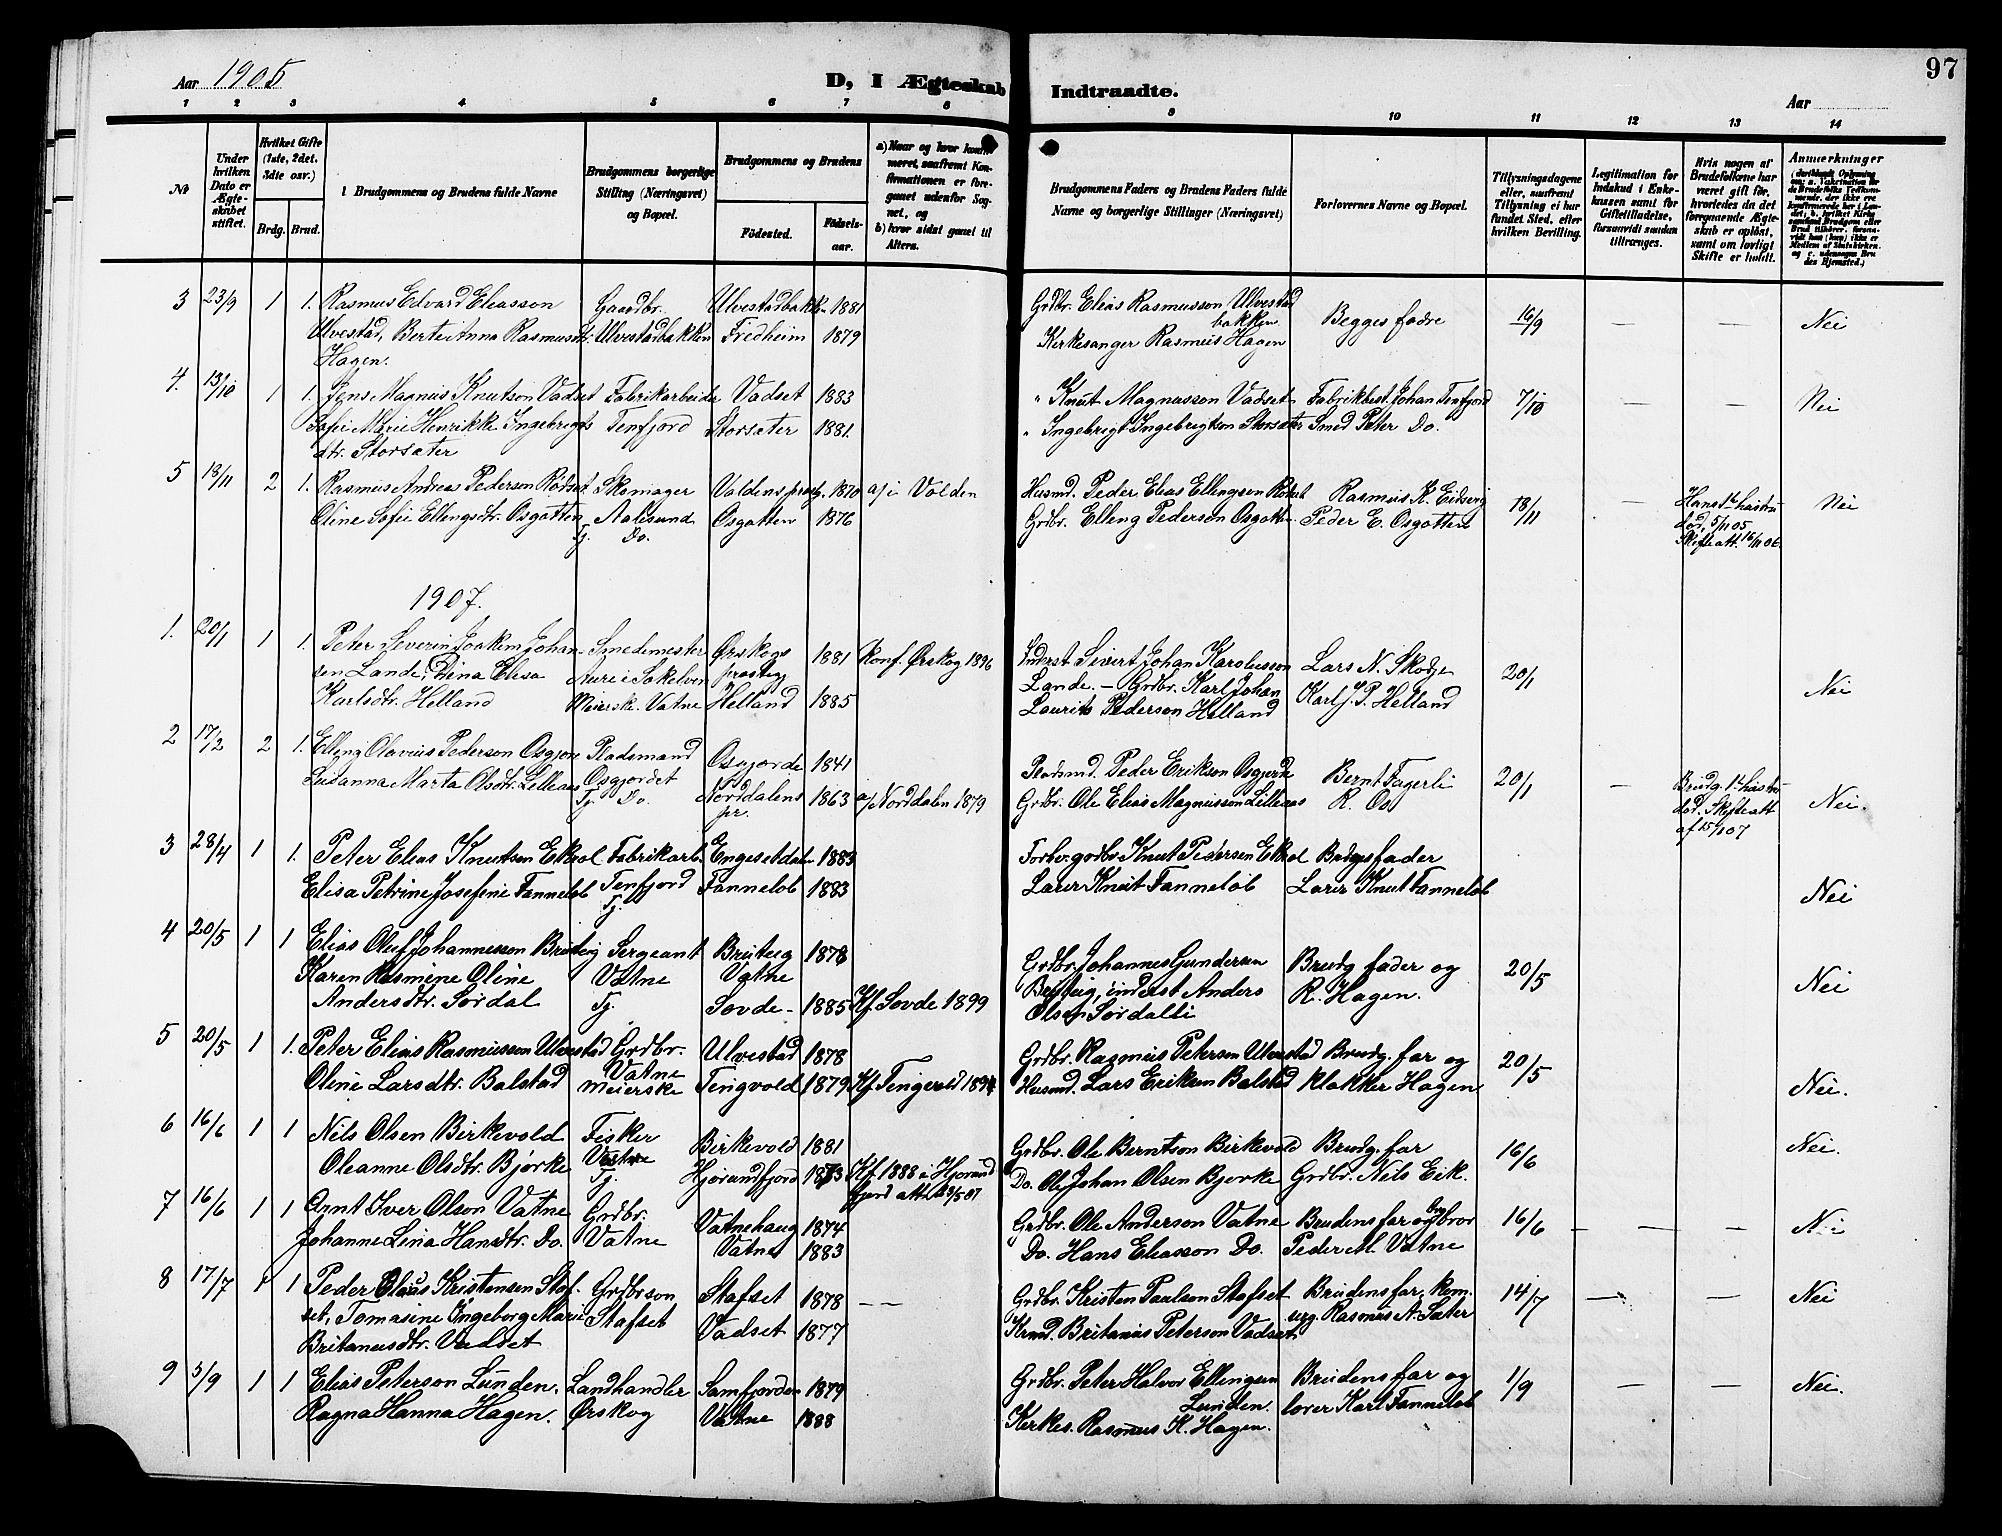 Aar 1905
D, I Ægteskab Indtraadte.
Aar
97
1 2 3 4 5 6 7 8 9 10 11 12 13 14
No
Under hvilken Dato er Ægteskabet stiftet.
Hvilket Gifte (1ste, 2det. 3die osv.)
Brdg. Brud.
Brudgommens og Brudens fulde Navne
Brudgommens borgerlige Stilling (Næringsvei) og Bopæl.
Brudgommens og Brudens
Fødested.
Fødselsaar.
a) Naar og hvor konfirmeret, saafremt Konfirmationen er foregaaet udenfor Sognet, og
b) hvor sidst gaaet til Alters.
Brudgommens Faders og Brudens Faders fulde Navne og borgerlige Stillinger (Næringsvei)
Forlovernes Navne og Bopæl.
Tillysningsdagene eller, saafremt Tillysning ei har fundet Sted, efter hvilken Bevilling.
Legitimation for Indskud i Enkekassen samt for Giftetilladelse, forsaavidt saadan tiltrænges.
Hvis nogen af Brudefolkene har været gift før, hvorledes da det foregaaende Ægteskab er opløst, samt om lovligt Skifte er holdt.
Anmærkninger
3 23/9 1 1. Rasmus Edvard Eliasson Gaardbr. Ulvestadbakk. 1881 Grdbr. Elias Rasmusson Ulvestad Begges fædre 16/9 — — Nei
Ulvestad, Berte Anna Rasmusdtr. Ulvestadbakken Fredheim 1879 bakken
Hagen. Kirkesanger Rasmus Hagen
4. 13/10 1 1. Jens Magnus Knutson Vadset Fabrikarbeider Vadset 1883 " Knut Magnusson Vadset Fabrikbest. Johan Tenfjord 7/10 — — Nei
Sofie Marie Henrikke Ingebrigts Tenfjord Storsæter 1881. " Ingebrigt Ingebrigtson Storsæter Smed Peter Do.
dtr. Storsæter
5 18/11 2 1. Rasmus Andreas Pederson Rødset Skomager Valdens prestg. 1870 a/i Volden Husmd. Peder Elias Ellingsen Rødset Rasmus K. Eidsvig 18/11 — Hans 1ste hustru Nei
Oline Sofie Ellingsdtr. Osgotten Aalesund Osgotten 1876 Grdbr. Elling Pederson Osgotten Peder E. Osgotten død, 5/11 05
Tj. Do. Skifteatt. 16/11 06.
1907.
1. 20/1 1 1. Peter Severin Joakim Johan- Smedemester Ørskogs 1881 Konf. Ørskog 1896 Inderst Sivert Johan Karolusson Lars N. Skodje 20/1 Nei
sen Lande, Dina Elisa Aure i Søkelven prestegj. Lande. — Grdbr. Karl Johan Karl J. P. Helland
Karlsdtr. Helland Meierske. Vatne Helland 1885 Laurits Pederson Helland
2 17/2 2 1. Elling Olavius Pederson Osgjore Pladsmand Osgjorde 1841 Pladsmd. Peder Erikson Osgjerde Bernt Fagerli 20/1 — Brudg. 1ste hustru Nei.
Susanna Marta Olsdtr. Lillenes Osgjordet Norddalens 1863 a/ Norddalen 1879 Grdbr. Ole Elias Magnusson Lillenes R. Os død. Skifteatt
Tj. Do. pr. af 15/1 07
3 28/4 1 1. Peter Elias Knutsen Ekrol Fabrikarb. Engesetdalen 1883 Forhv. grdbr. Knut Pedersen Ekrol Brdgs fader Nei
Elisa Petrine Josefine Tanneløb Tenfjord Tanneløb 1883 Lærer Knut Tanneløb Lærer Knut Tanneløb
Tj.
4 20/5 1 1 Elias Oluf Johannesson Bruteig Sergeant Bruteig 1878 Grdbr. Johannes Gundersen Brudg fader og 20/5 Nei
Karen Rasmine Oline Vatne Vatne Bruteig, inderst Anders R. Hagen.
Andersdtr. Sørdal Tj. Sovde - 1885 Kf. Sovde 1899 Olsen Sørdalli
5 20/5 1 1. Peter Elias Rasmusson Ulvestad Grdbr. Ulvestad 1878 Grdbr. Rasmus Petersen Ulvestad Brudg. far og 20/5 Nei.
Oline Larsdtr. Balstad Vatne Meierske Tingvold 1879 Kf. Tingvold 1894 Husmd. Lars Eriksen Balstad klokker Hagen
6 16/6 1 1 Nils Olsen Birkevold Fisker Birkevold 1881 Grdbr. Ole Berntson Birkevold Brudg. far 16/6 Nei.
Oleanne Olsdtr. Bjørke Vatne Tj. Hjørundfjord 1873 Kf. 1888 i Hjørund Do. Ole Johan Olsen Bjørke Grdbr. Nils Eik.
fjord att. 23/5 07
7 16/6 1 1 Arnt Iver Olson Vatne Grdbr. Vatnehaug 1874 Grdbr. Ole Anderson Vatne Brudens far og bror 16/6 — — Nei
Johanne Lina Hansdtr. Do. Vatne Vatne 1883 Do. Hans Eliasson Do. Peder M. Vatne
8 17/7 1 1 Peder Olaus Kristensen Staf- Grdbrson Stafset 1878 — — Grdbr. Kristen Paulsen Stafset Brudens far, kom- 14/7 — — Nei
set, Tomasine Ingeborg Marie Stafset Vadset 1877 Krmd. Britanus Peterson Vadset. erg. Rasmus A. Sæter
Britanusdtr. Vadset
9 5/9 1 1 Elias Peterson Lunden. Landhandler Samfjorden 1879 Grdbr. Peter Halvor Ellingsen Brudens far og 1/9 — — Nei.
Ragna Hanna Hagen. Ørskog Vatne 1888 Lunden. lærer Karl Tanneløb
Kirkes. Rasmus K. Hagen.